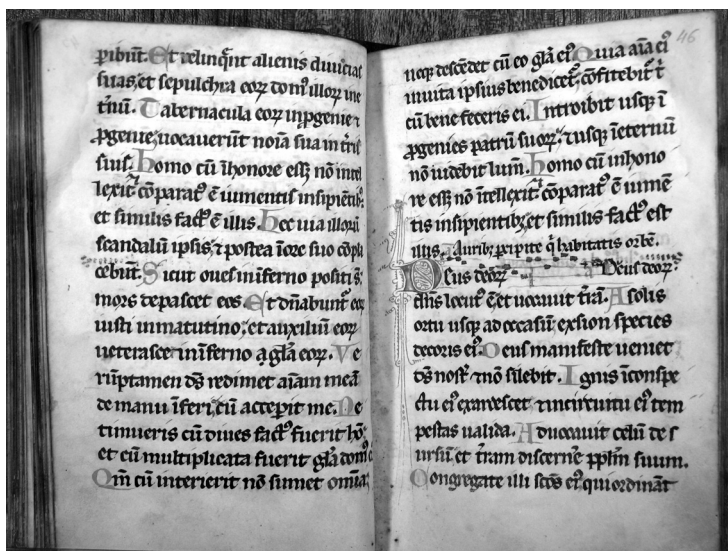 ꝑibūt. Et relinq̄nt alienis diuicias
suas, et sepulchra eoꝝ domꝰ illoꝝ ine
t̄nū. Tabernacula eoꝝ in ꝓgenie ⁊
ꝓgenie, uocauerūt noīa sua in t̄ris
suis. Homo cū ī honore ess; nō intel
lexit, cōparatꝰ ē iumentis insipientib;
et similis factꝰ ē illis. Hec uia illoꝝ
scandalū ipsis, ⁊ postea ī ore suo cōpla
cebūt. Sicut oues in īferno positi s̄,
mors depascet eos. Et dn̄abunt̄ eoꝝ
iusti in matutino, et auxiliū eoꝝ
ueterascet in īferno a gl̄a eoꝝ. Ve
rūptamen ds̄ redimet aīam meā
de manu īferi, cū acceperit me. Ne
timueris cū diues factꝰ fuerit hō,
et cū multiplicata fuerit gl̄a domꝰ
Qm̄ cū interierit nō sumet omnia,
46
neqꝫ descēdet cū eo gl̄a eiꝰ. Quia aīa eiꝰ
in uita ipsius benedicet̄, cōfitebit̄ t̄
cū bene feceris ei. Introibit usqꝫ ī
ꝓgenies patrū suoꝝ, ⁊ usqꝫ ī eternū
nō uidebit lum̄. Homo cū in hono
re ess; nō ītellexit, cōparatꝰ ē iumē
tis insipientibꝫ, et similis factꝰ est
illis. Auribꝫ ꝑcipite q̄ habitatis orbē.
Deus deoꝝ Deus deoꝝ
dn̄s locutꝰ ē, et uocauit t̄rā. A solis
ortu usqꝫ ad occasū, ex sion species
decoris eiꝰ. Deus manifeste ueniet
ds̄ nost̄ ⁊ nō silebit. Ignis ī conspe
ctu eiꝰ exardescet ⁊ in circuitu eiꝰ tem
pestas ualida. Aduocauit celū de s
ursū, et t̄ram discerne̅ ppl̄m suum.
Congregate illi scōs eiꝰ, qui ordināt